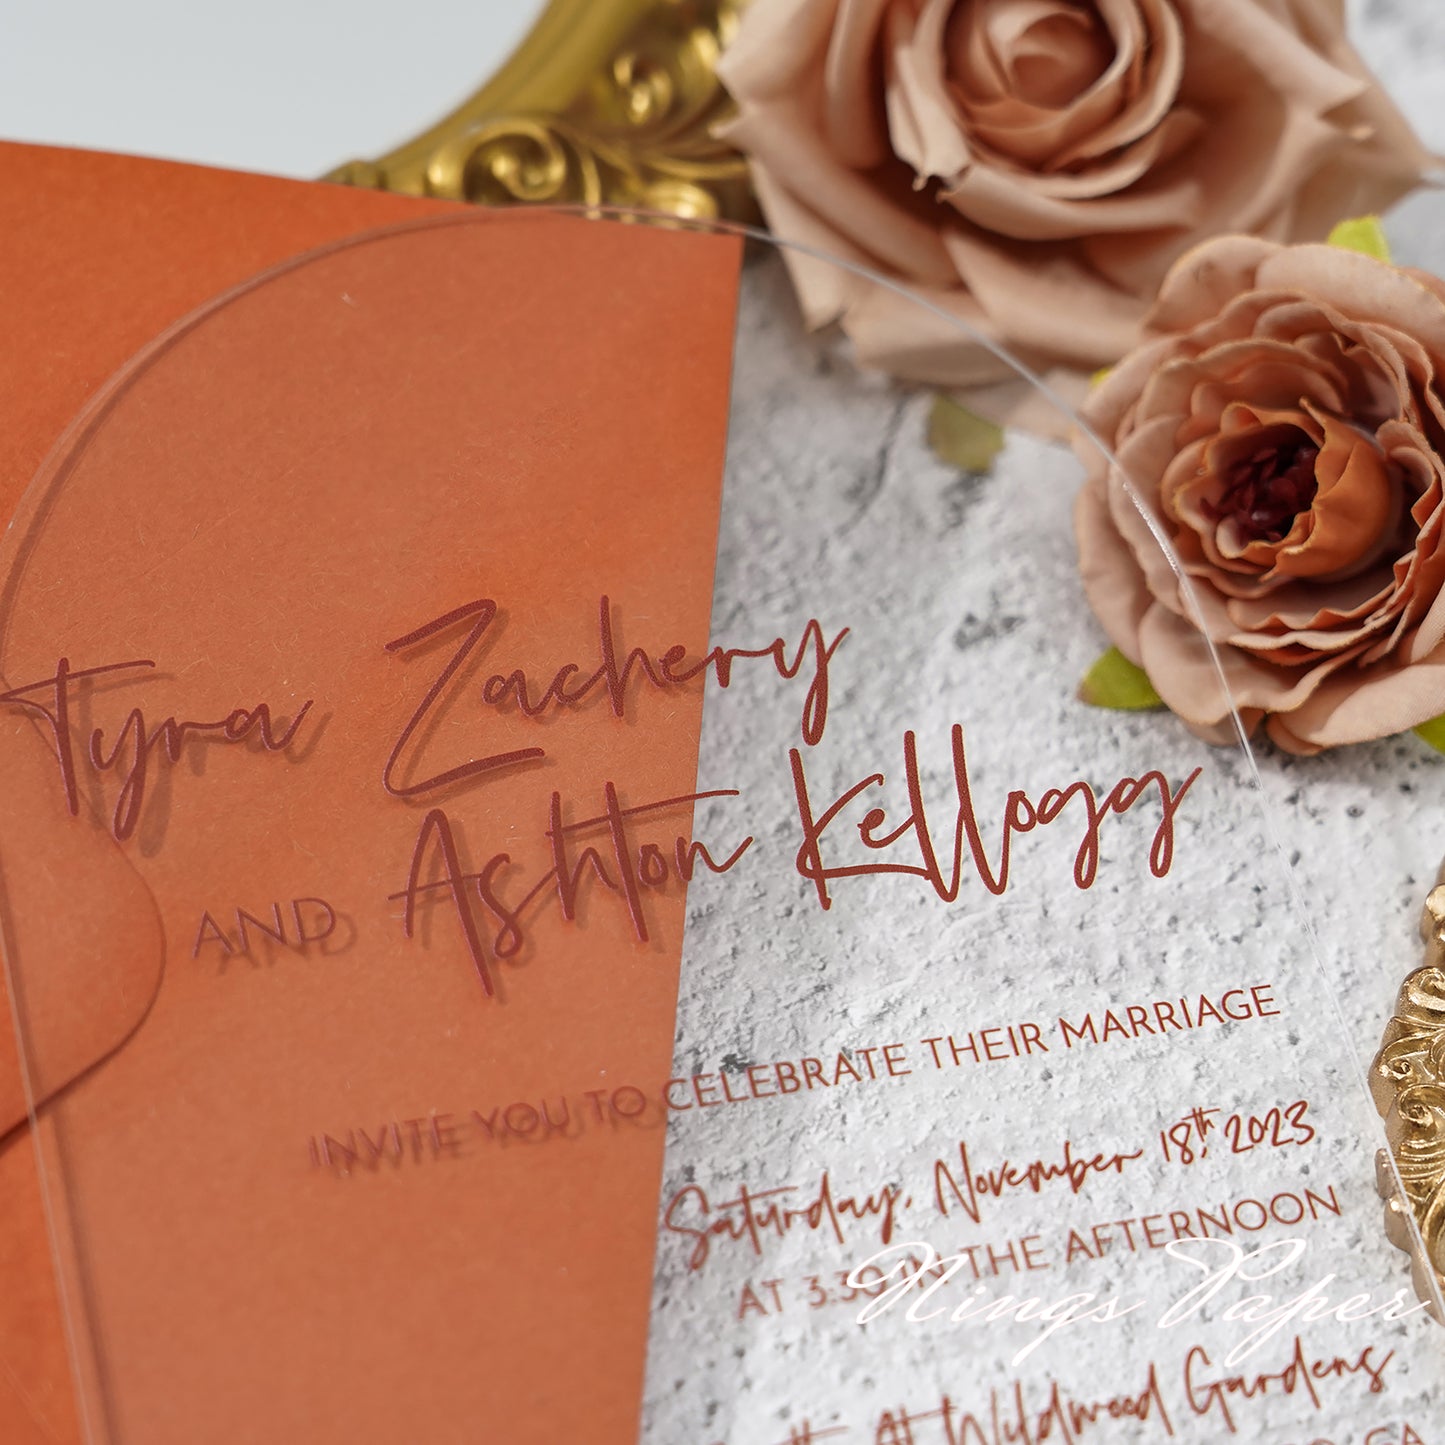 Tyra Zachery
AND Ashton Kellogg
INVITE YOU TO CELEBRATE THEIR MARRIAGE
Saturday, November 18th, 2023
AT 3:30 IN THE AFTERNOON
Nings Paper
At Wildwood Gardens
CA